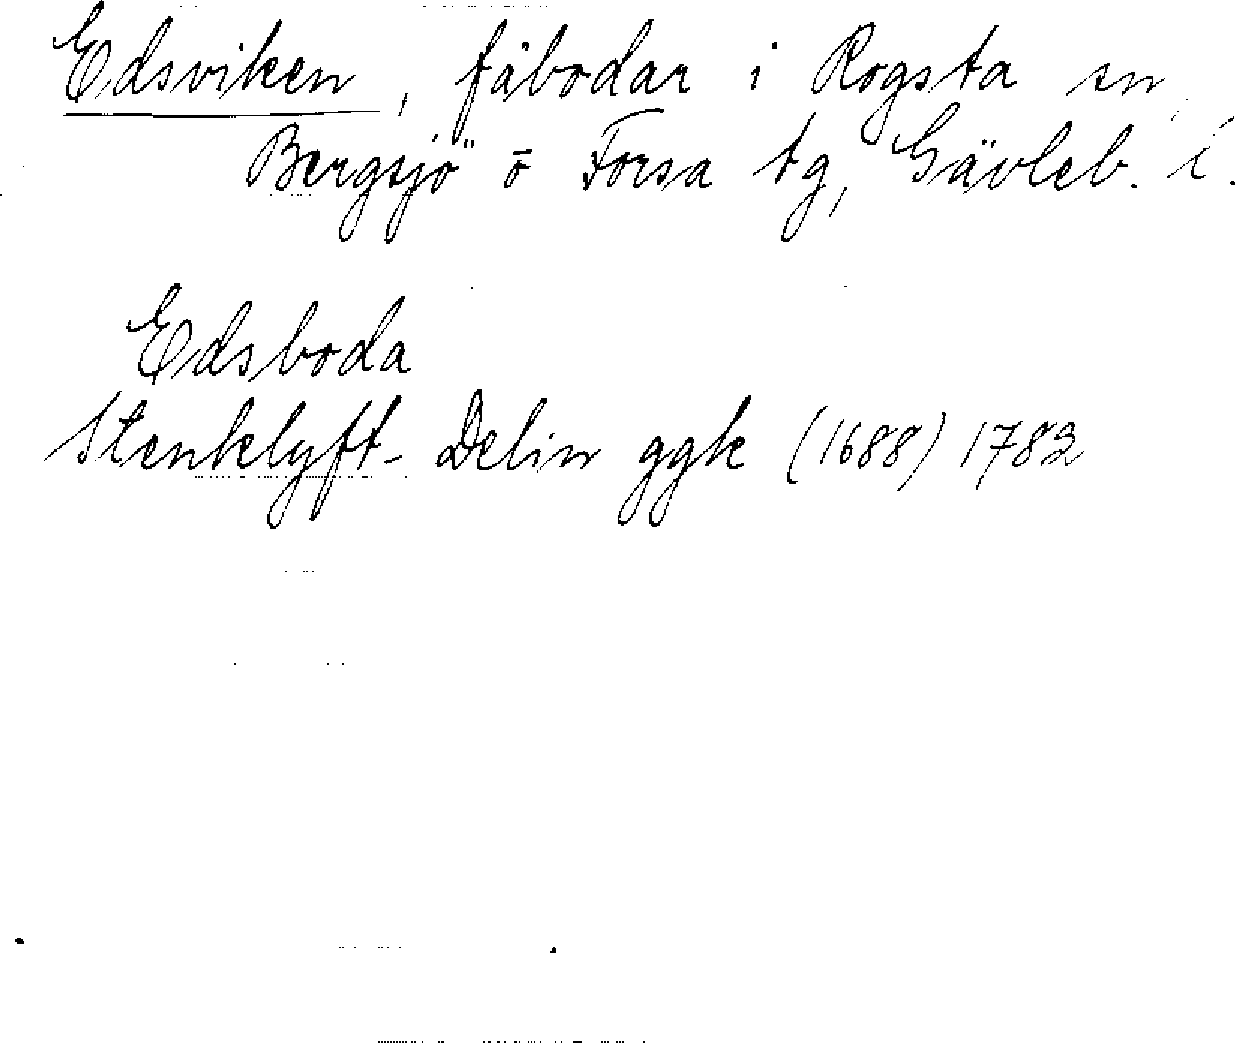 Edsviken, fäbodar i Rogsta sn,
Bergsjö o Forsa tg, Gävleb. l.
Edsboda
Stenklyft- Delin ggk (1688) 1782